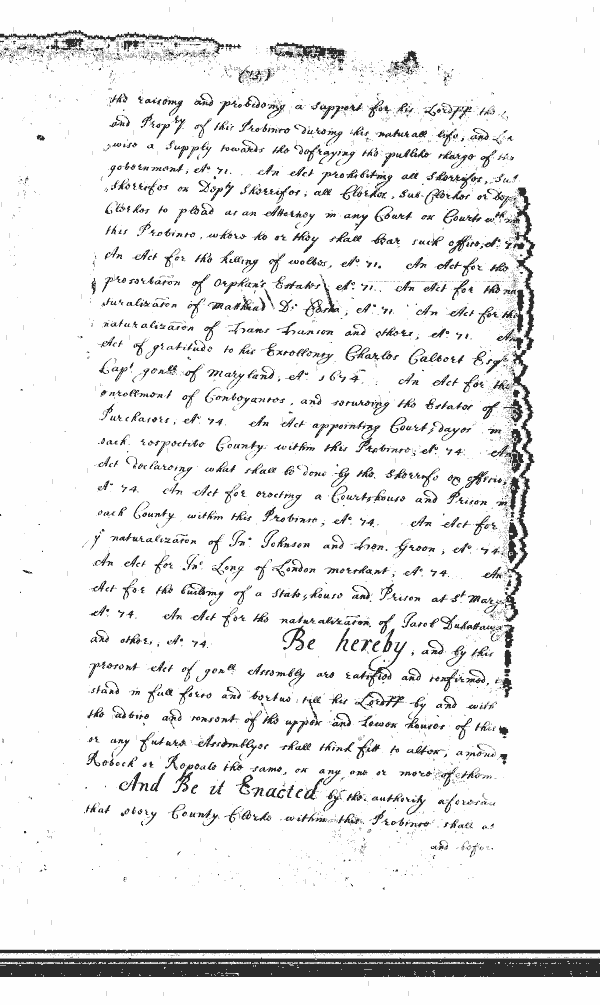 the raiseing and provideing a Support for his Lordpp the
and Propry of this Province dureing his naturall life, and
wise a Supply towards the defraying the publike charge of the
government, Ao 71. An Act prohibiting all Sherriffes, Sub
Sherriffes or Depty Sherriffes; all Clerkes, Sub-Clerkes or Dep
Clerkes to plead as an Attorney in any Court or Courts wthin
this Province, where he or they shall bear such office, Ao 71
An Act for the killing of wolves, Ao 71. An Act for the
preservacon of Orphans Estates, Ao 71. An Act for the na
turalizacon of Mathias De Costa, Ao 71. An Act for the
naturalizacon of Hans Hanson and others, Ao 71. An
Act of gratitude to his Excellency Charles Calvert Esqr
Capt genll of Maryland, Ao 1674. An Act for the
enrollment of Conveyances, and secureing the Estates of
Purchasers, Ao 74. An Act appointing Court dayes in
each respective County within this Province, Ao 74. An
Act declareing what shall be done by the Sherriffe ex officio,
Ao 74. An Act for erecting a Courthouse and Prison in
each County within this Province, Ao 74. An Act for
ye naturalizacon of Jno Johnson and Leon. Green, Ao 74.
An Act for Jno Long of London merchant, Ao 74. An
Act for the building of a State house and Prison at St Mary
Ao 74. An Act for the naturalizacon of Jacob Duhattaway
and others, Ao 74. Be hereby, and by this
present Act of genll Assembly are ratifyed and confirmed, to
stand in full force and vertue till his Lordpp by and with
the advice and consent of the upper and lower houses of this
or any future Assemblyes shall think fitt to alter, amend
Revock or Repeale the same, or any one or more of them.
And Be it Enacted by the authority aforesaid
that every County Clerke within this Province shall at
and befor